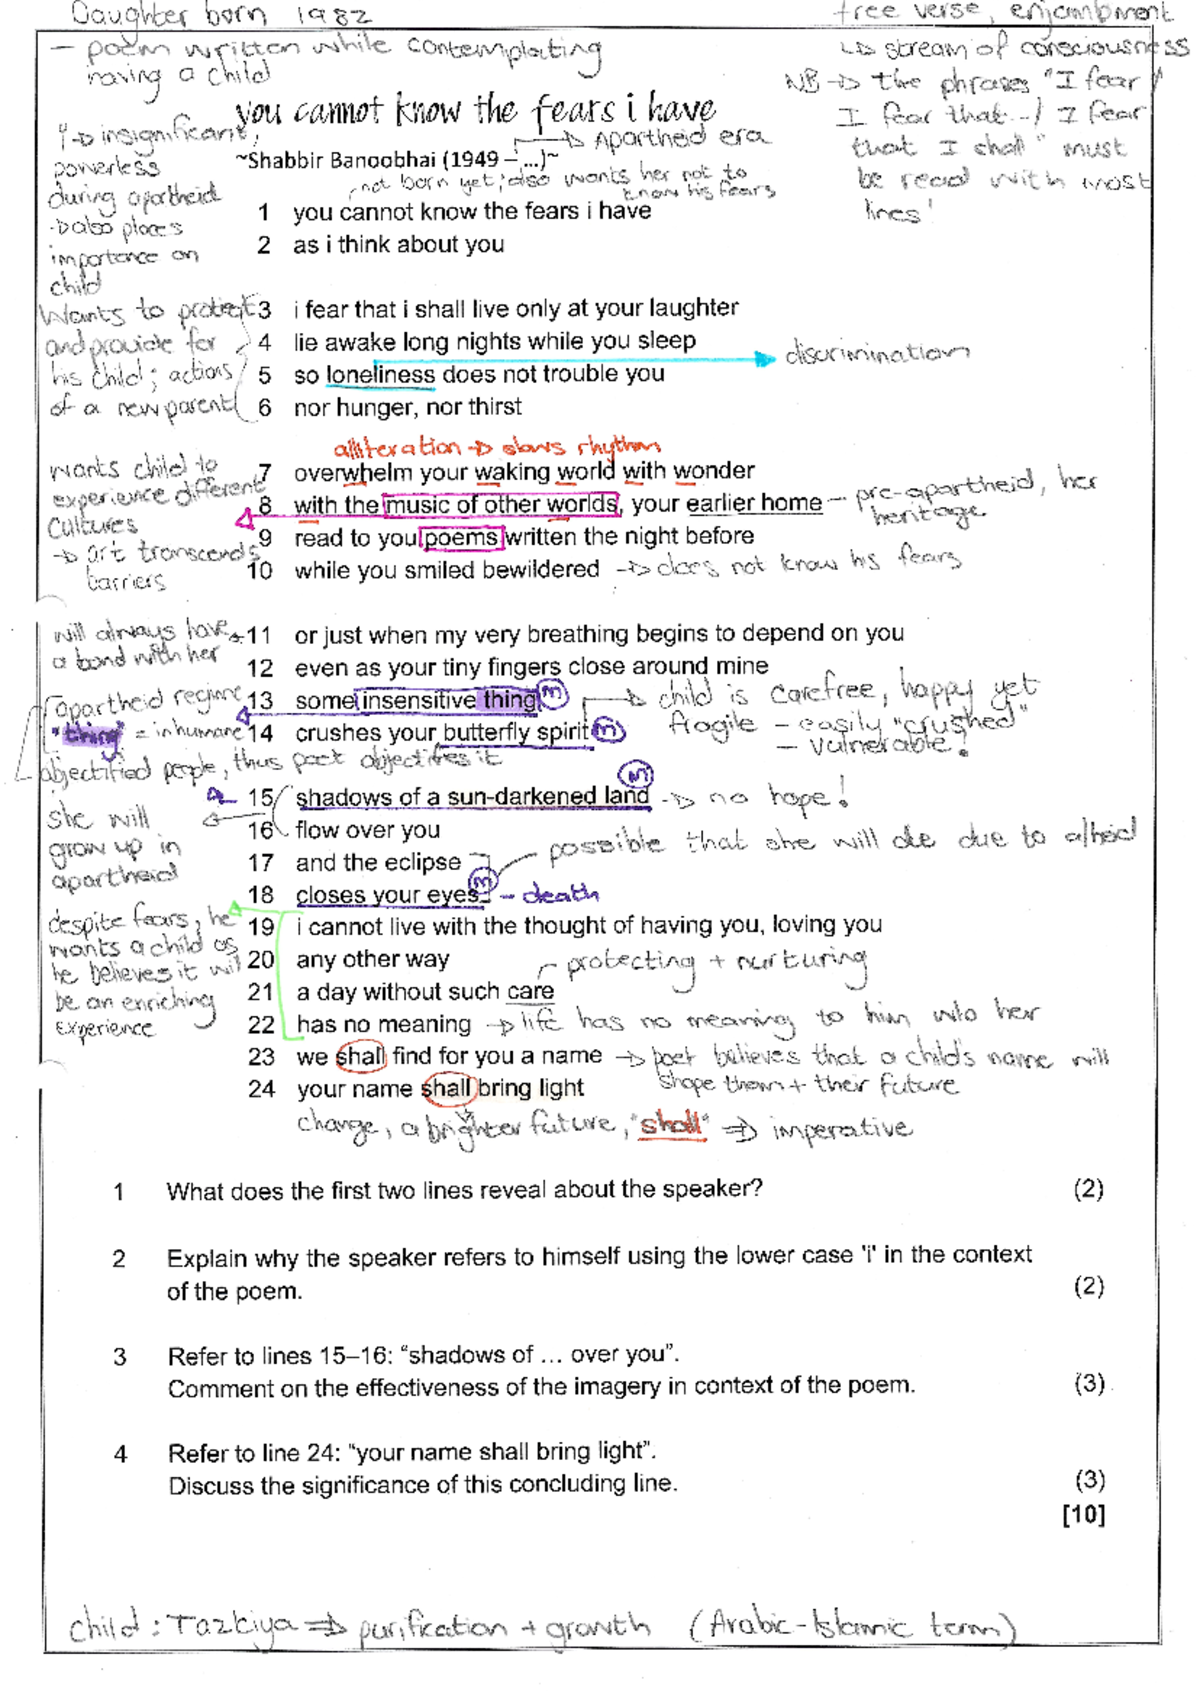 Daughter born 1982
free verse, enjambment
– poem written while contemplating
having a child
↳ stream of consciousness
NB → the phrases "I fear /
I fear that -/ I fear
that I shall" must
be read with most
lines!
you cannot know the fears i have
→ Apartheid era
~Shabbir Banoobhai (1949 – ...)~
"i" → insignificant,
powerless
during apartheid
→ also places
importance on
child
not born yet; also wants her not to
know his fears
1 you cannot know the fears i have
2 as i think about you
Wants to protect
and provide for
his child; actions
of a new parent
3 i fear that i shall live only at your laughter
4 lie awake long nights while you sleep
→ discrimination
5 so loneliness does not trouble you
6 nor hunger, nor thirst
alliteration → slows rhythm
wants child to
experience different
cultures
→ art transcends
barriers
7 overwhelm your waking world with wonder
8 with the music of other worlds, your earlier home – pre-apartheid, her
heritage
9 read to you poems written the night before
10 while you smiled bewildered → does not know his fears
will always have
a bond with her
11 or just when my very breathing begins to depend on you
12 even as your tiny fingers close around mine
apartheid regime
"thing" = inhumane
objectified people, thus poet objectifies it
13 some insensitive thing (m)
→ child is carefree, happy yet
fragile – easily "crushed"
– vulnerable!
14 crushes your butterfly spirit (m)
(m)
15 shadows of a sun-darkened land → no hope!
she will
grow up in
apartheid
16 flow over you
17 and the eclipse
possible that she will die due to a/heid
(m)
18 closes your eyes – death
despite fears, he
wants a child as
he believes it will
be an enriching
experience
19 i cannot live with the thought of having you, loving you
20 any other way
protecting + nurturing
21 a day without such care
22 has no meaning → life has no meaning to him w/o her
23 we shall find for you a name → poet believes that a child's name will
shape them + their future
24 your name shall bring light
change, a brighter future, "shall" ⇒ imperative
1 What does the first two lines reveal about the speaker? (2)
2 Explain why the speaker refers to himself using the lower case 'i' in the context
of the poem. (2)
3 Refer to lines 15–16: “shadows of ... over you”.
Comment on the effectiveness of the imagery in context of the poem. (3)
4 Refer to line 24: “your name shall bring light”.
Discuss the significance of this concluding line. (3)
[10]
child : Tazkiya ⇒ purification + growth (Arabic-Islamic term)